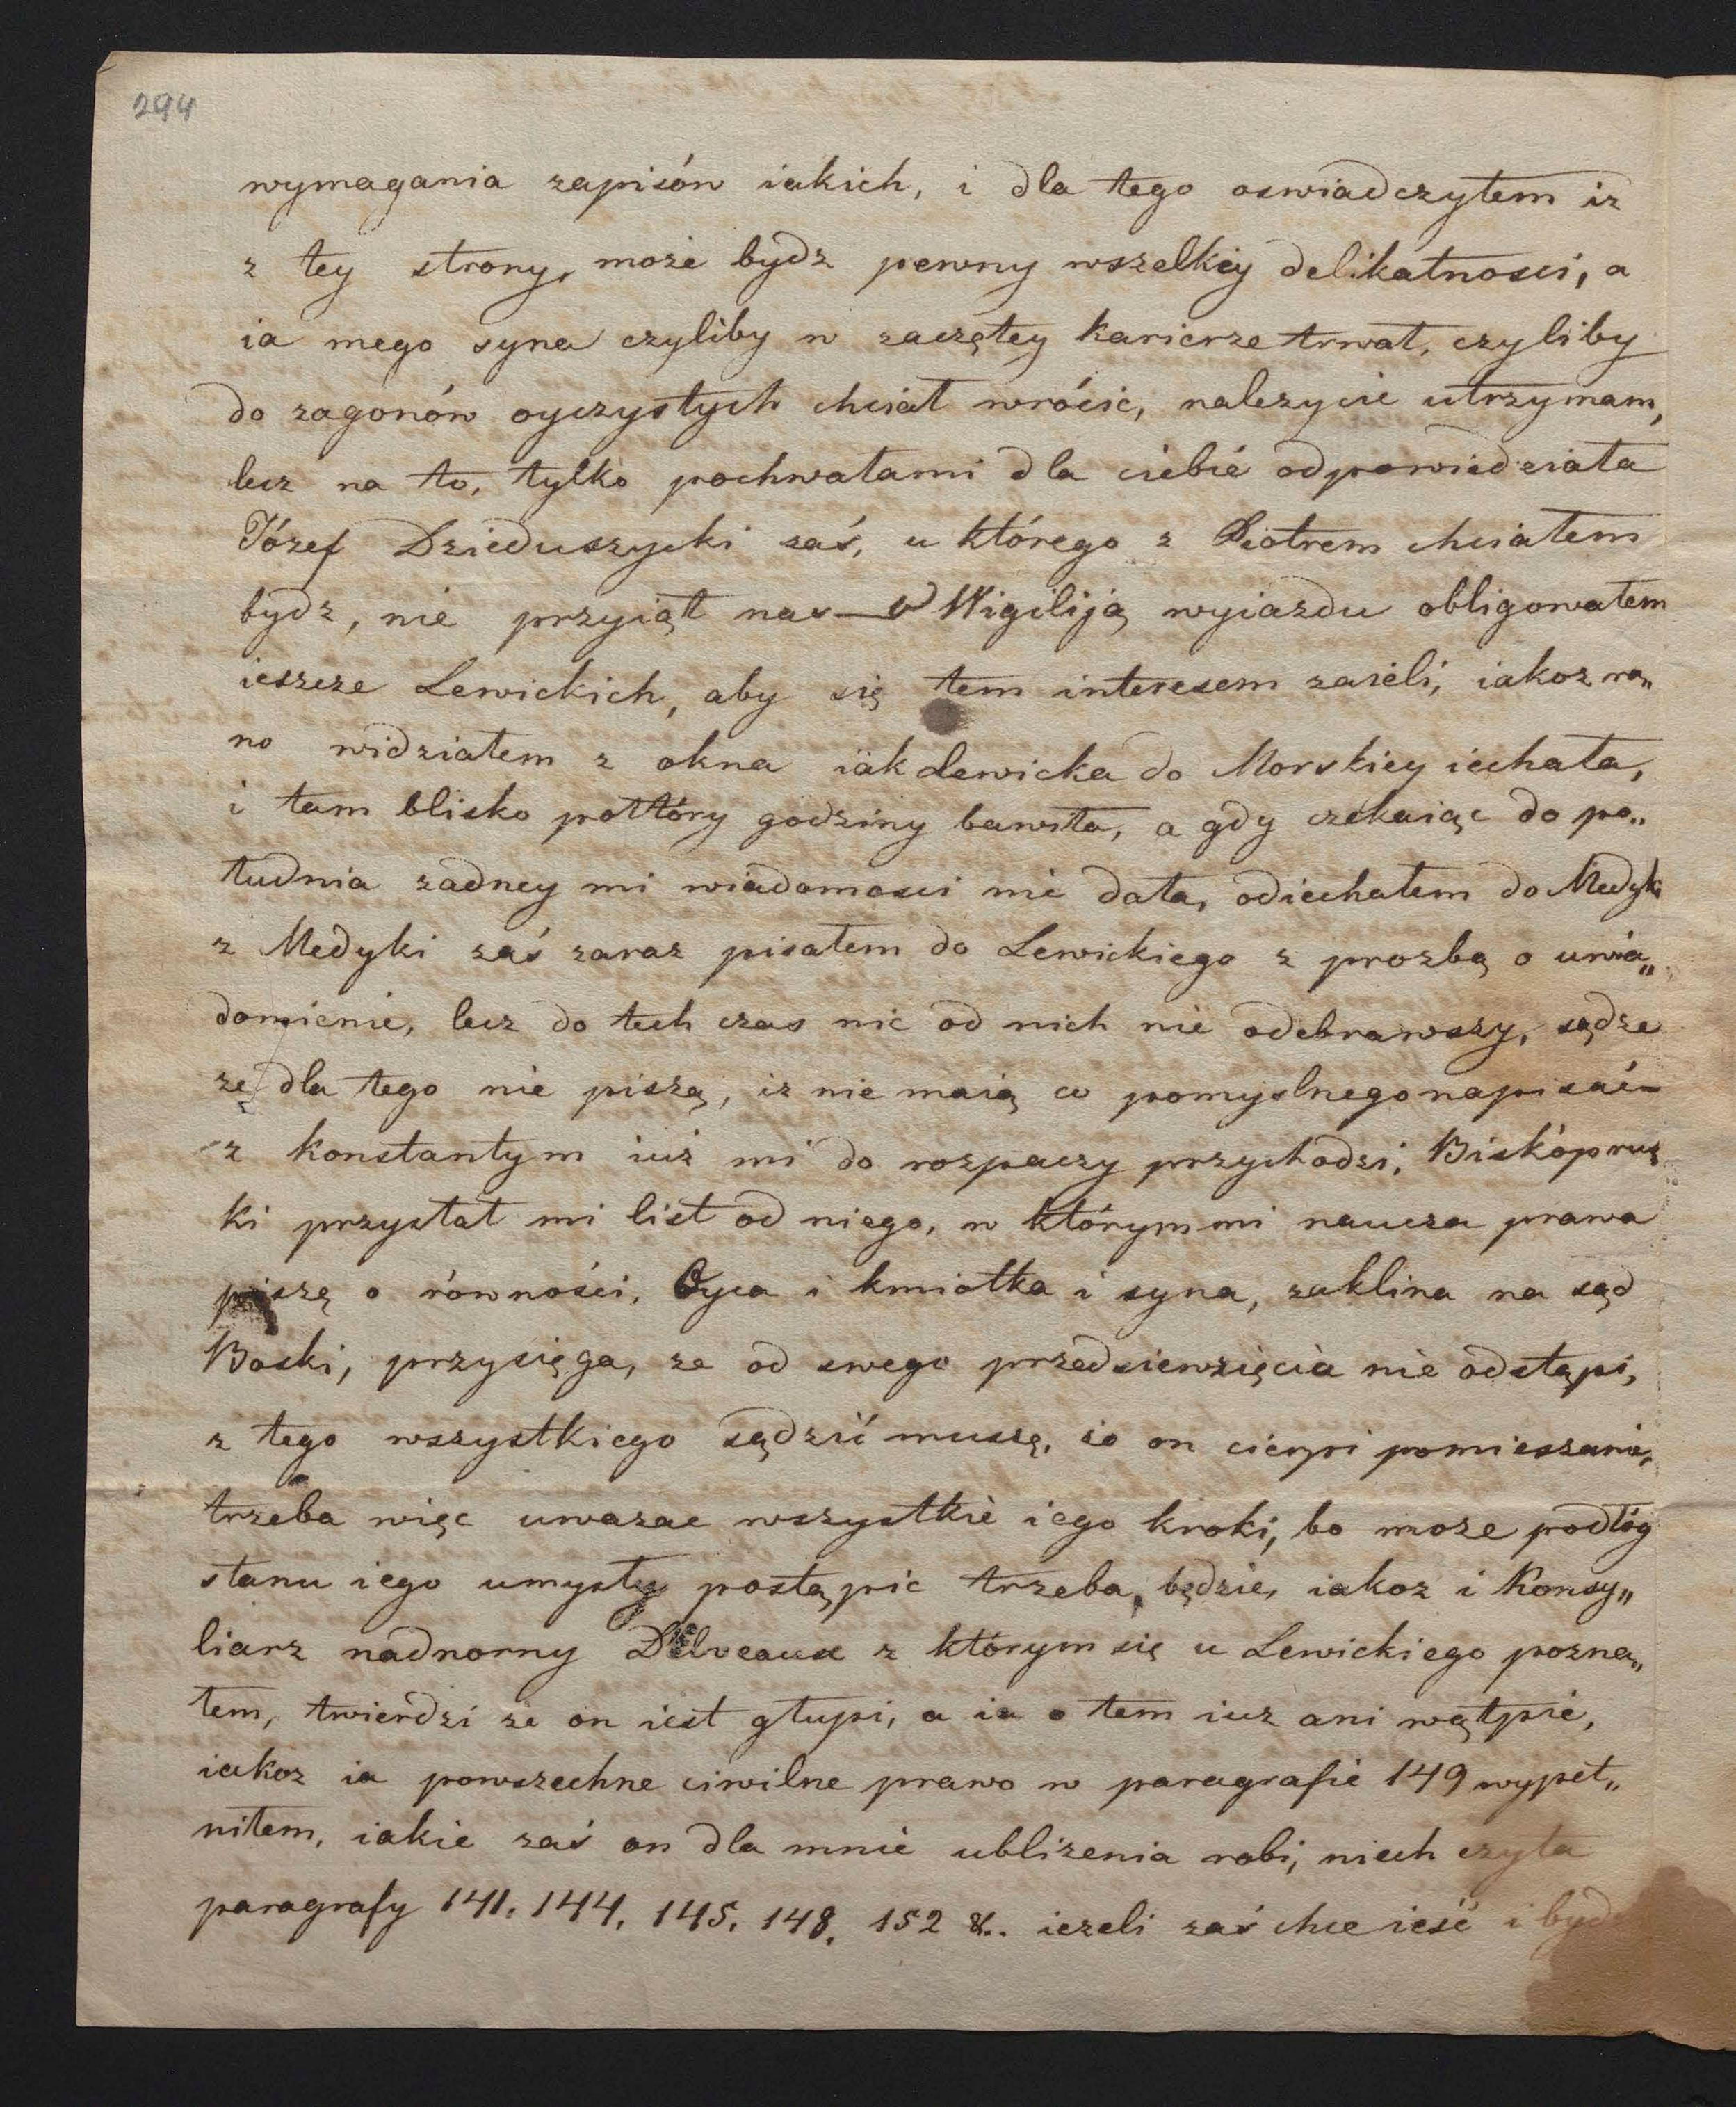 294
wymagania zapisów iakich, i dla tego oswiadczyłem iz
z tey strony, może bydz pewny wszelkiey delikatnosci, a
ia mego syna czyliby w zaczętey karierze trwał, czyliby
do zagonów oyczystych chciał wrócić, nalezycie utrzymam,
lecz na to, tylko pochwałami dla ciebie odpowiedziała
Józef Dzieduszycki zaś, u którego z Piotrem chciałem
bydz, nie przyiął nas — w Wigiliją wyiazdu obligowałem
ieszcze Lewickich, aby się tem interesem zaieli, iakoz ra„
no widziałem z okna iak Lewicka do Morskiey iechała,
i tam blisko połtóry godziny bawiła, a gdy czekaiąc do po„
łudnia zadney mi wiadomosci nie dała, odiechałem do Medyki
z Medyki zaś zaraz pisałem do Lewickiego z prozbą o uwia„
domienie, lecz do tech czas nic od nich nie odebrawszy, sądze
zę dla tego nie piszą, iz nie maią co pomyslnego napisać —
z Konstantym iuż mi do rozpaczy przychodzi, Biskóprus
ki przysłał mi list od niego, w którym mi naucza prawa
piszę o równości, Oyca i kmiotka i syna, zaklina na sąd
Boski, przysięga, ze od swego przedsiewzięcia nie odstąpi,
z tego wszystkiego sądzić muszę, że on cierpi pomieszanie,
trzeba więc uwazac wszystkie iego kroki, bo moze podłóg
stanu iego umysłu postąpic trzeba, będzie, iakoz i Konsy„
liarz nadworny Delveaux z którym się u Lewickiego pozna„
łem, twierdzi ze on iest głupi, a ia o tem iuz ani wątpie,
iakoz ia powszechne ciwilne prawo w paragrafie 149 wypeł„
niłem, iakie zaś on dla mnie ubliżenia robi, niech czyta
paragrafy 141. 144. 145. 148. 152 &. iezeli zaś chce ieść i bydz